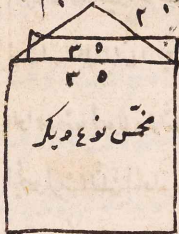 ۲۰
۳۵
۳۵
مخمّس نوع دیگر